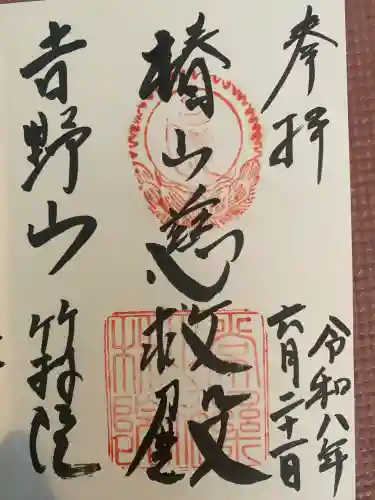 奉拝
令和八年
六月二十一日
椿山慈救殿
吉野山 竹林院